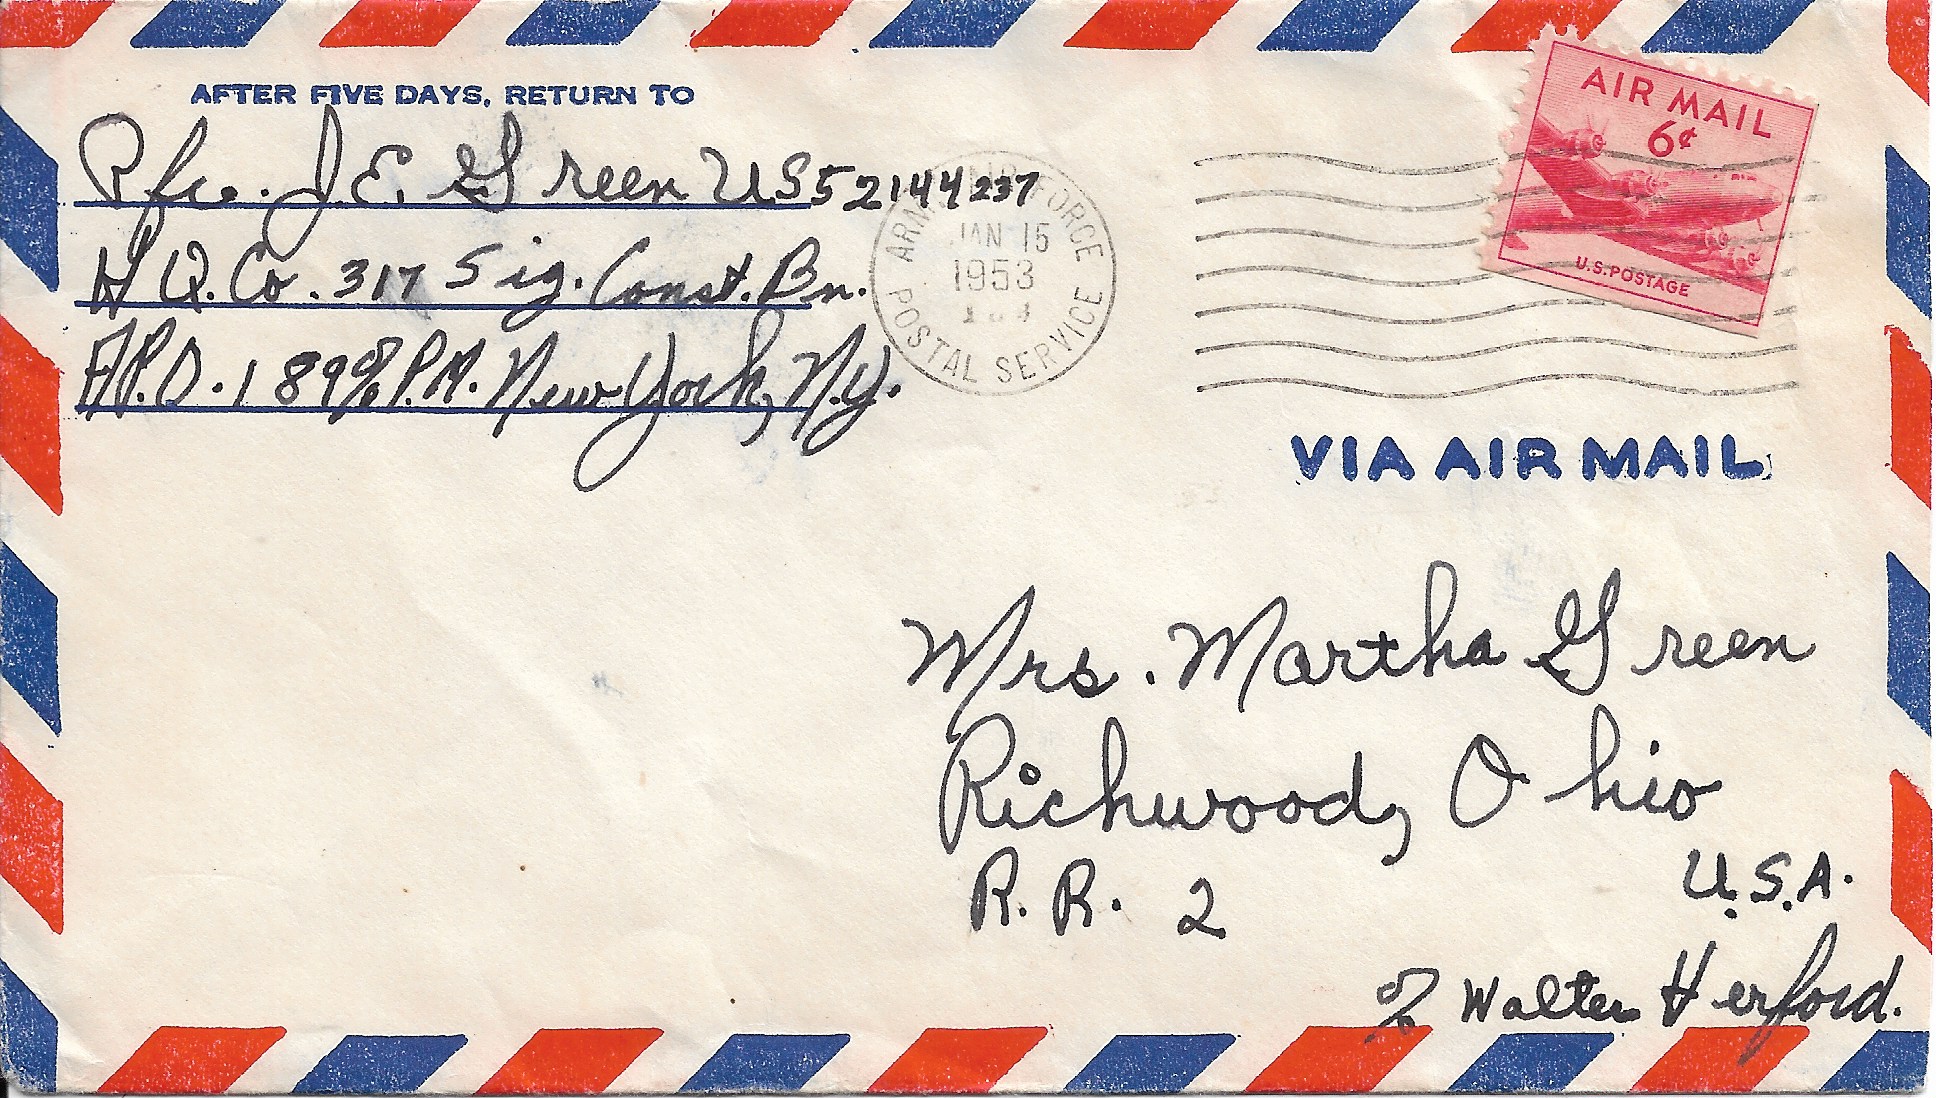 AFTER FIVE DAYS, RETURN TO
Pfc. J. E. Green US52144237
H Q. Co. 317 Sig. Const. Bn.
A.P.O. 189 % P.M. New York, N.Y.
ARMY AIR FORCE
JAN 15
1953
POSTAL SERVICE
AIR MAIL
6¢
U.S. POSTAGE
VIA AIR MAIL
Mrs. Martha Green
Richwood, Ohio
R. R. 2 U.S.A.
% Walter Herford.